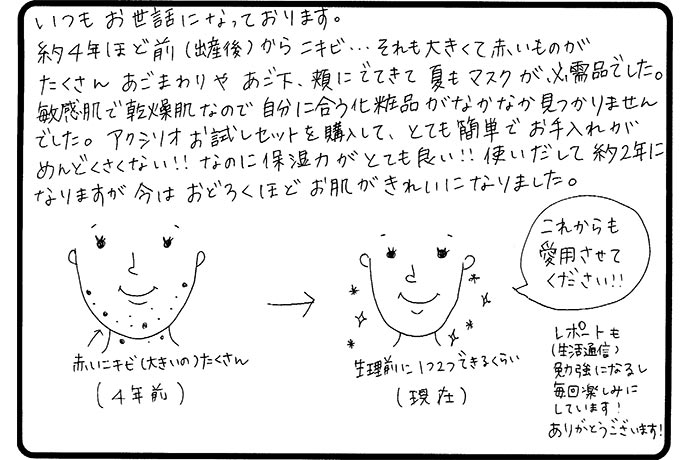 いつも お世話になっております。
約4年ほど前(出産後)から ニキビ… それも大きくて赤いものが
たくさん あごまわりや あご下、頬にでてきて 夏もマスクが必需品でした。
敏感肌で乾燥肌なので 自分に合う化粧品がなかなか見つかりません
でした。 アクシリオお試しセットを購入して、とても簡単でお手入れが
めんどくさくない!! なのに保湿力がとても良い!! 使いだして約2年に
なりますが 今は おどろくほど お肌がきれいになりました。
これからも
愛用させて
ください!!
赤いニキビ(大きいの)たくさん
(4年前)
生理前に1つ2つできるくらい
(現在)
レポートも
(生活通信)
勉強になるし
毎回楽しみに
しています!
ありがとうございます!